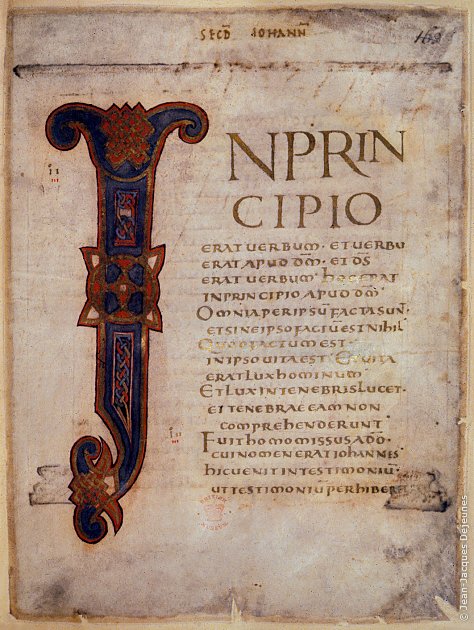 SECD̄ IOHANN̄
INPRIN
CIPIO
ERAT UERBUM · ET UERBU
ERAT APUD DM̄ · ET DS̄
ERAT UERBUM · HOC ERAT
IN PRINCIPIO APUD DM̄
OMNIA PER IPSŪ FACTA SUN̄
ET SINE IPSO FACTU EST NIHIL
QUOD FACTUM EST
IN IPSO UITA EST · ET UITA
ERAT LUX HOMINUM
ET LUX IN TENEBRIS LUCET ·
ET TENEBRAE EAM NON
COMPREHENDERUNT
FUIT HOMO MISSUS A DŌ
CUI NOMEN ERAT IOHANNES
HIC UENIT IN TESTIMONIŪ
UT TESTIMONIŪ PERHIBER
© Jean-Jacques Dejeunes